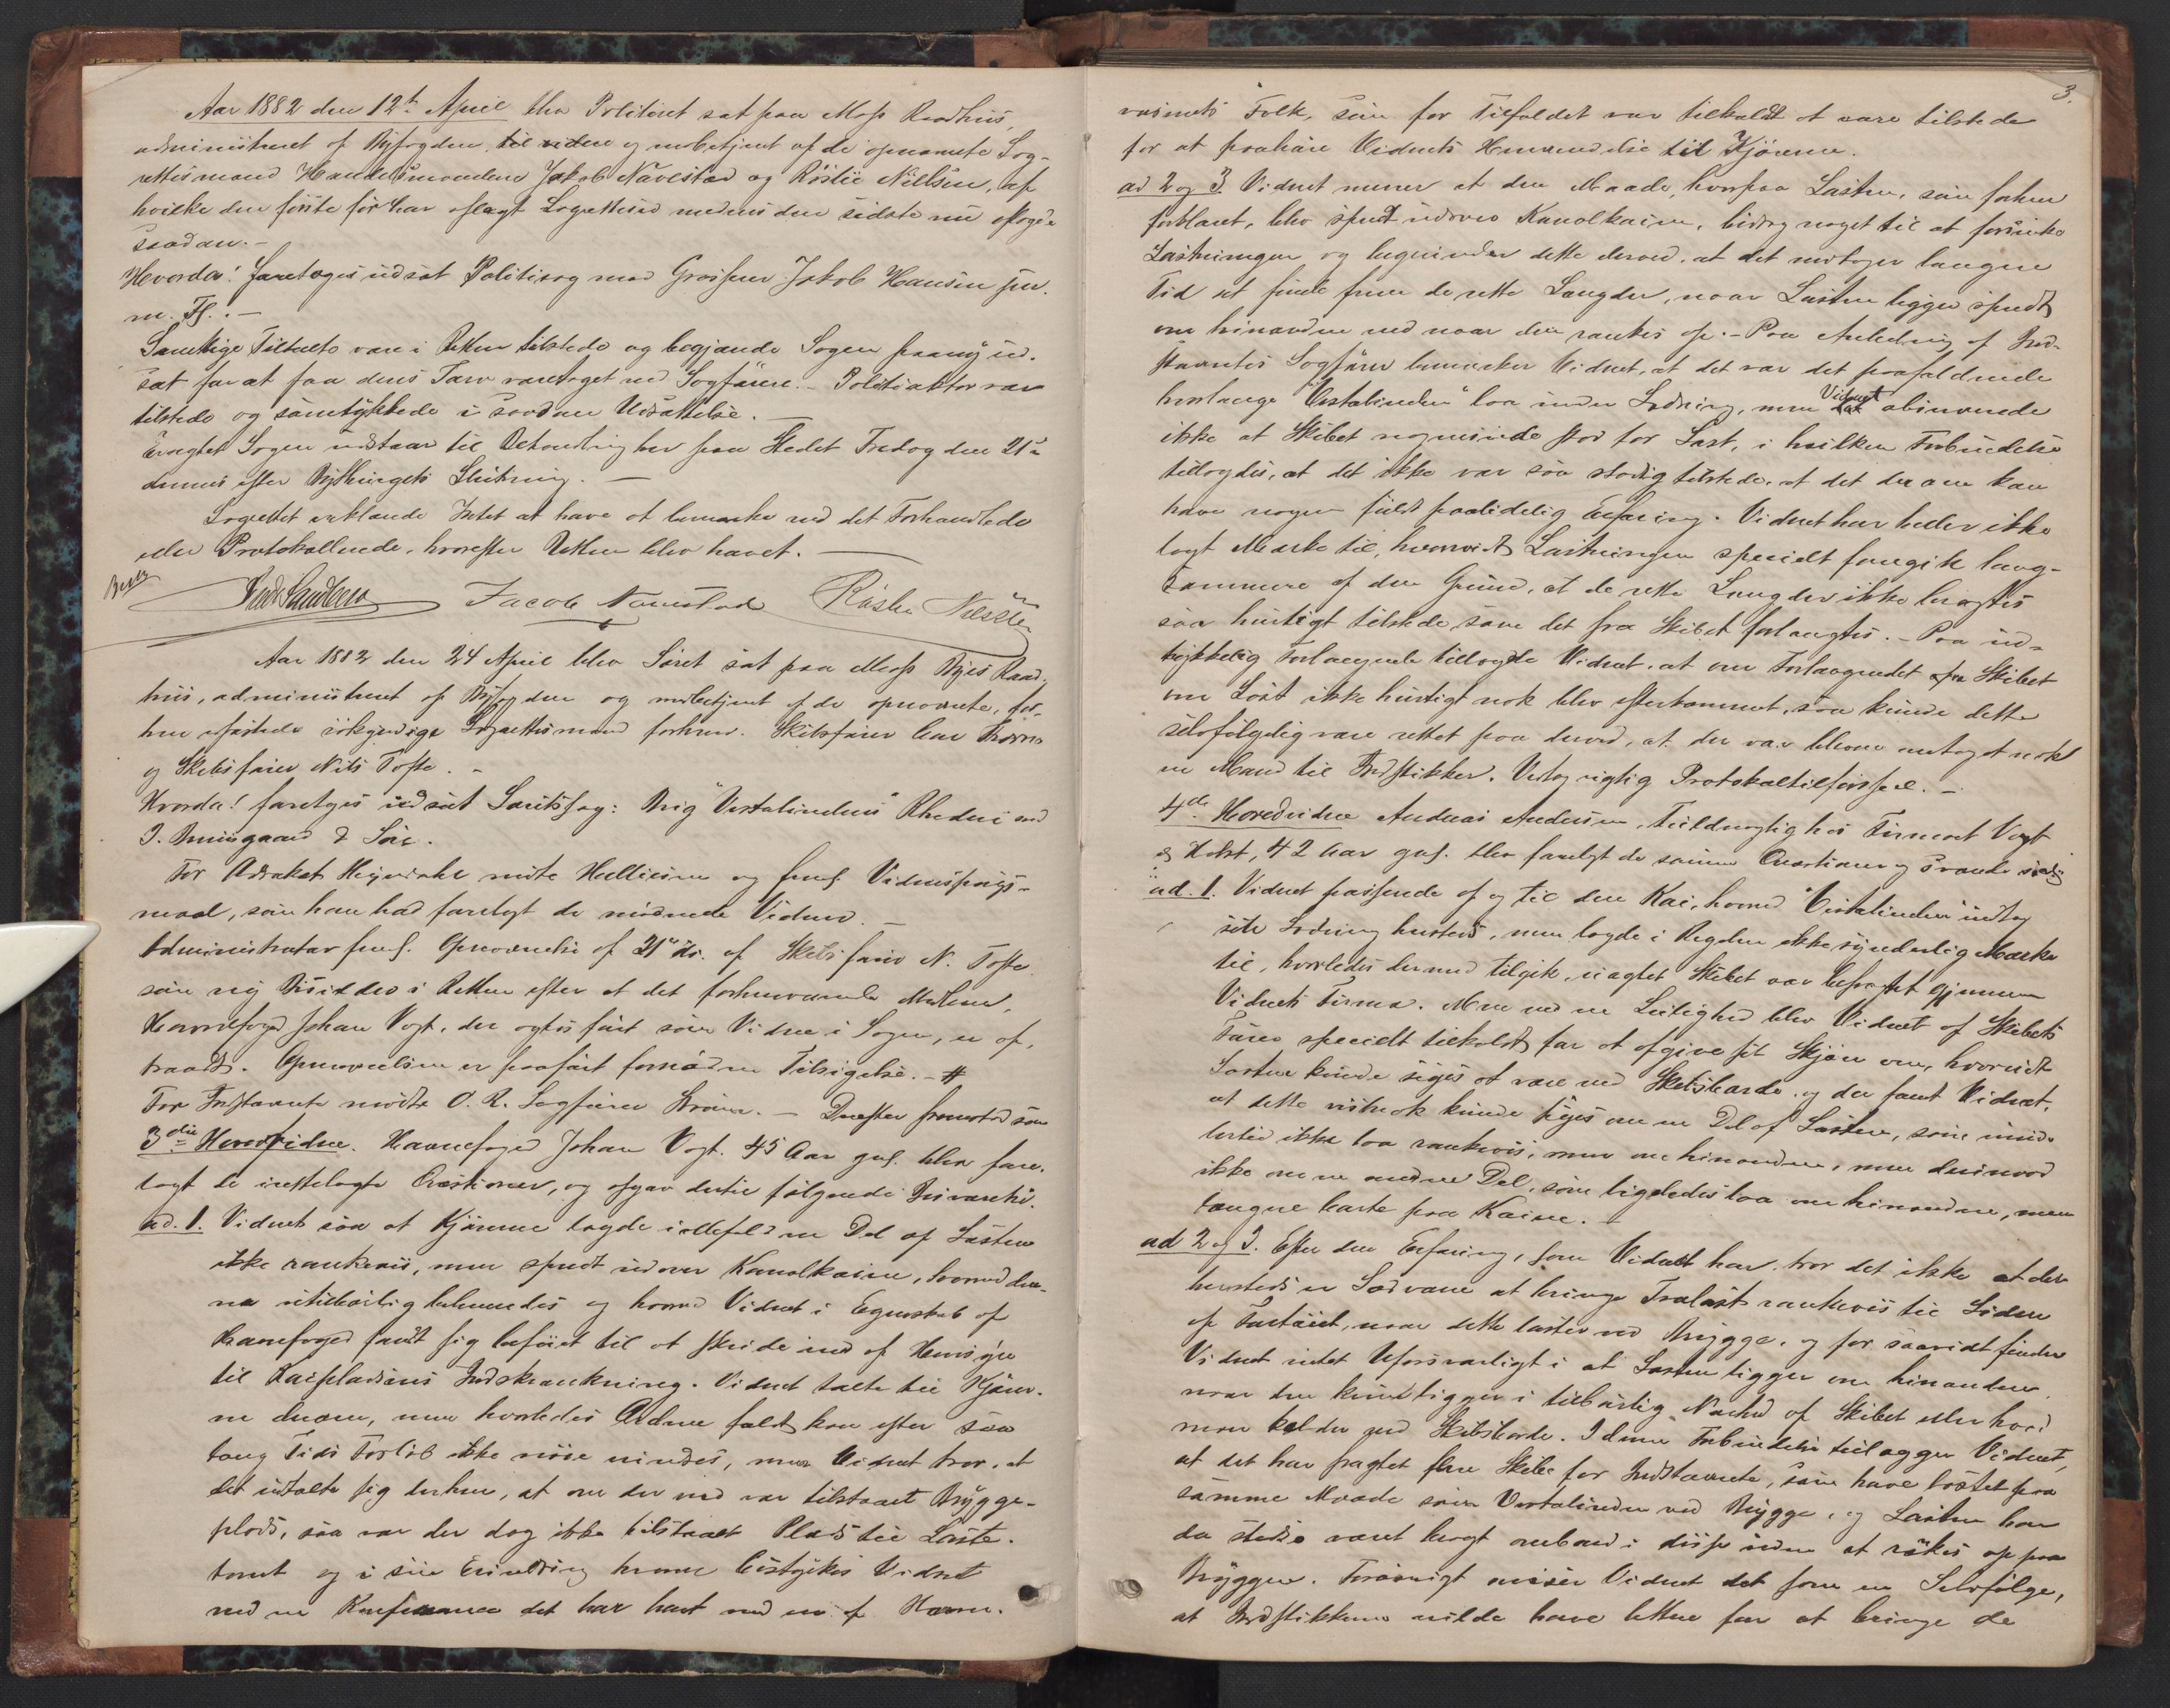 Aar 1882 den 12te April blev Politiret sat paa Moss Raadhus,
administreret af Byfogden til videre og mdbetjent af de opnævnte Lag-
rettesmænd Handelsmændene Jakob Navestad og Röslie Nielsen, af
hvilke den første før har aflagt Lagrettesed medens den sidste nu aflagde
saadan. -
Hvorda! foretoges udsat Politisag mod Grosserer Jakob Hansen jun.
m. Fl. . -
Samtlige Tiltalte vare i Retten tilstede og begjærede Sagen paany ud-
sat for at faa deres Tarv varetaget ved Sagfører. - Politiaktor var
tilstede og samtykkede i saadan Udsættelse. -
Eragtet Sagen udstaar til Behandling her paa Stedet Fredag den 21de
dennes efter Bythingets Slutning. -
Lagrettet erklærede Intet at have at bemærke ved det Forhandlede
eller Protokollerede, hvorefter Retten blev hævet. -
Jacob Navestad Röslie Nielsen
Aar 1882 den 24 April blev Søret sat paa Moss Byes Raad-
hus, administreret af Byfogden og mdbetjent af de opnævnte, for-
hen edfæstede søkyndige Lagrettesmænd forhenv. Skibsfører
og Skibsfører Nils Tofte. -
Hvorda! foretoges udsat Søretssag: Brig "Vestalinden"s Rhederi mod
J. Bruusgaard & Søn.
For Advokat mødte Hellesen og freml. Vidnespørgs-
maal, som han bad forelagt de mødende Vidner. -
Administrator freml. Opnævnelse af 21de ds. af Skibsfører N. Tofte
som ny Bisidder i Retten efter at det forhenværende Medlem,
Havnefoged Johan Vogt, der agtes ført som Vidne i Sagen, er af-
traadt. Opnævnelsen er paaført fornøden Tilsigelse. - #
For Indstævnte mødte O. R. Sagfører - Derefter fremstod som
3die Hovedvidne. Havnefoged Johan Vogt. 45 Aar gml. blev fore-
lagt de irettelagte Qvæstioner, og afgav dertil følgende Besvarelse.
ad. 1. Vidnet saa at Kjørerne lagde ialfald en Del af Lasten
ikke rankevis, men spredt udover Kanalkaien, hvorved den-
ne utilbørlig behæmmedes og hvorved Vidnet i Egenskab af
Havnefoged fandt sig beføiet til at skride ind af Hensyn
til Kaipladsens Indskrænkning. Vidnet talte til Kjører-
ne derom, men hvorledes Ordene faldt kan efter saa
lang Tids Forløb ikke nøie mindes, men Vidnet tror, at
det udtalte sig derhen, at om der end var tilstaaet Brygge-
plads, saa var der dog ikke tilstaaet Plads til Laste-
tomt og i sin Erindring herom bestyrkes Vidnet
ved en Konference det har havt med en af Havne-
3.
væsnets Folk, som for Tilfældet var tilkaldt at være tilstede
for at paahøre Vidnets Henvendelse til Kjørerne.
ad 2 og 3. Vidnet mener at den Maade, hvorpaa Lasten, som forhen
forklaret, blev spredt udover Kanalkaien, bidrog noget til at forsinke
Lastningen og begrunder dette derved, at det medtager længere
Tid at finde frem de rette Længder, naar Lasten ligger spredt
om hinanden end naar den rankes op. - Paa Anledning af Ind-
stævntes Sagfører bemærker Vidnet, at det var det paafaldende
hvorlænge "Vestalinden" laa under Ladning, men Vidnet observerede
ikke at Skibet nogensinde stod for Last, i hvilken Forbindelse
tillagdes, at det ikke var saa stadig tilstede, at det derom kan
have nogen fuldt paalidelig Erfaring. Vidnet har heller ikke
lagt Mærke til, hvorvidt Lastningen specielt foregik lang-
sommere af den Grund, at de rette Længder ikke bragtes
saa hurtigt tilstede som det fra Skibet forlangtes. - Paa ud-
trykkelig Forlangende tillagde Vidnet, at om Forlangendet fra Skibet
om Last ikke hurtigt nok blev efterkommet, saa kunde dette
selvfølgelig være rettet paa derved, at der var bleven antaget nok
en Mand til Indstikker. Vedtog rigtig Protokoltilførsel. -
4de Hovedvidne Andreas Andersen, Fuldmægtig hos Firmaet Vogt
& Holst, 42 Aar gml. blev forelagt de samme Qvæstioner og svarede
ad. 1. Vidnet passerede af og til den Kai, hvorved "Vestalinden" indtog
sin Ladning hersteds, men lagde i Regelen ikke synderlig Mærke
til, hvorledes dermed tilgik, uagtet Skibet var befragtet gjennem
Vidnets Firma. Men ved en Leilighed blev Vidnet af Skibets
Fører specielt tilkaldt for at afgive sit Skjøn om, hvorvidt
Lasten kunde siges at være ved Skibsborde, og da fandt Vidnet,
at dette vistnok kunde siges om en Del af Lasten, som imid-
lertid ikke laa rankevis, men om hinanden, men derimod
ikke om en anden Del, som ligeledes laa om hinanden, men
længere borte paa Kaien. -
ad 2 og 3. Efter den Erfaring, som Vidnet har, tror det ikke at der
hersteds er Sædvane at bringe Trælast rankevis til Siden
af Fartøiet, naar dette laster ved Brygge, og for saavidt finder
Vidnet intet Uforsvarligt i at Lasten ligger om hinanden,
naar den kun ligger i tilbørlig Nærhed af Skibet eller hvad
man kalder ved Skibsborde. I denne Forbindelse tillægger Vidnet,
at det har fragtet flere Skibe for Indstævnte, som have lastet paa
samme Maade som Vestalinden ved Brygge, og Lasten har
da stedse været bragt ombord i disse uden at røkes op paa
Bryggen. Forøvrigt anser Vidnet det som en Selvfølge,
at Indstikkerne vilde have lettere for at bringe de